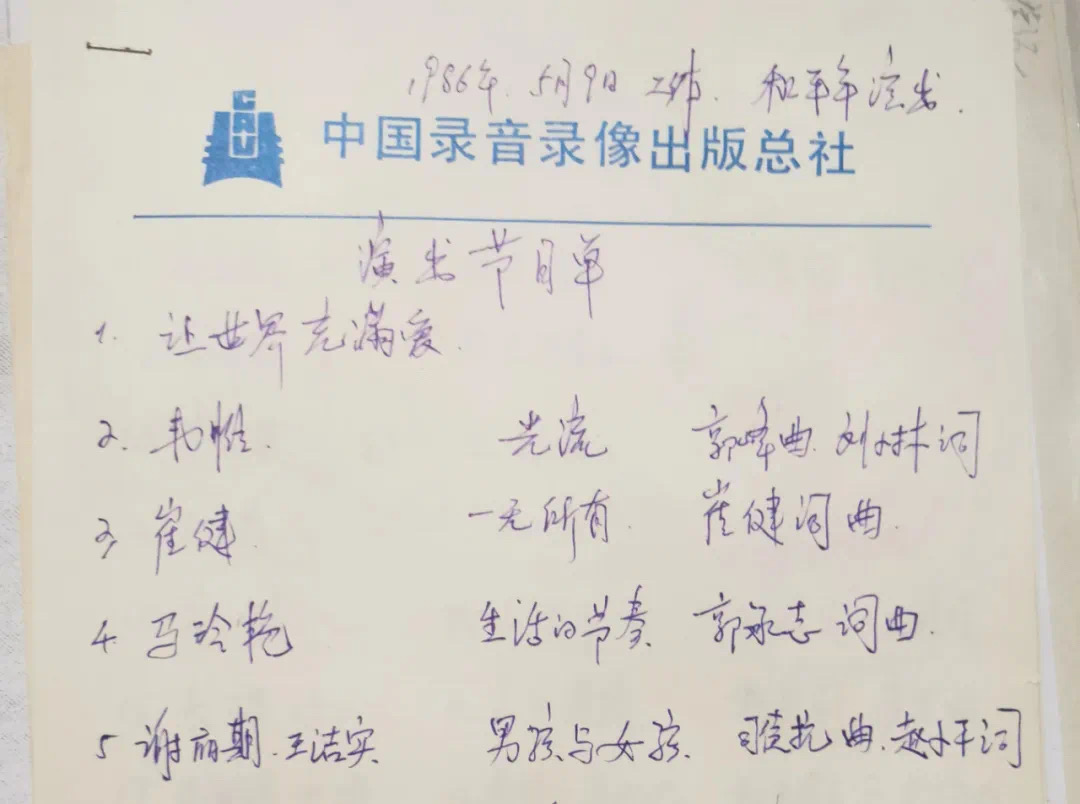 1986年.5月9日 工体. 和平年演出.
CAV
中国录音录像出版总社
演出节目单
1. 让世界充满爱.
2. 韦唯. 光流 郭峰曲.刘小林词
3, 崔健. 一无所有. 崔健词曲.
4. 马玲艳 生活的节奏 郭永志词曲.
5 谢丽期.王洁实 男孩与女孩. 曲.赵小平词